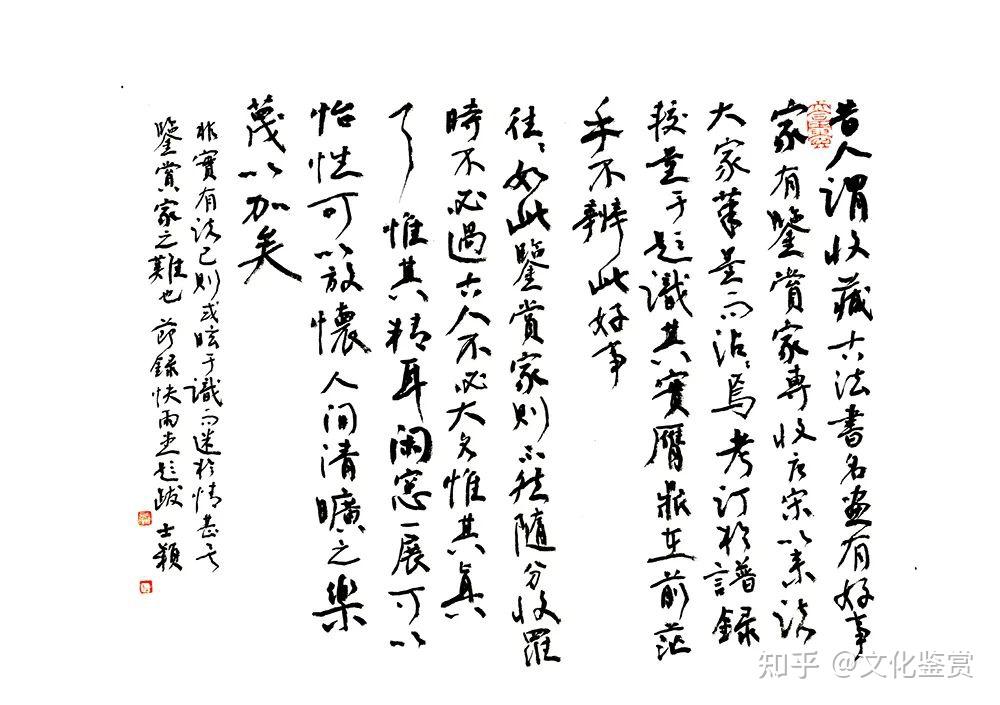 昔人謂收藏古法書名畫有好事
家有鑒賞家專收唐宋以来諸
大家菫菫而沾沾焉考訂於譜録
較量于題識其實贋鼎在前茫
乎不辨此好事
往往如此鑒賞家則不然随分收羅
時不必過古人不必大名惟其真
了惟其精耳闲窓一展可以
怡性可以放懷人间清曠之樂
蔑以加矣
非實有法己則或眩于識而迷於情甚
鑒賞家之難也節録快雨堂題跋士穎
知乎 @文化鉴赏